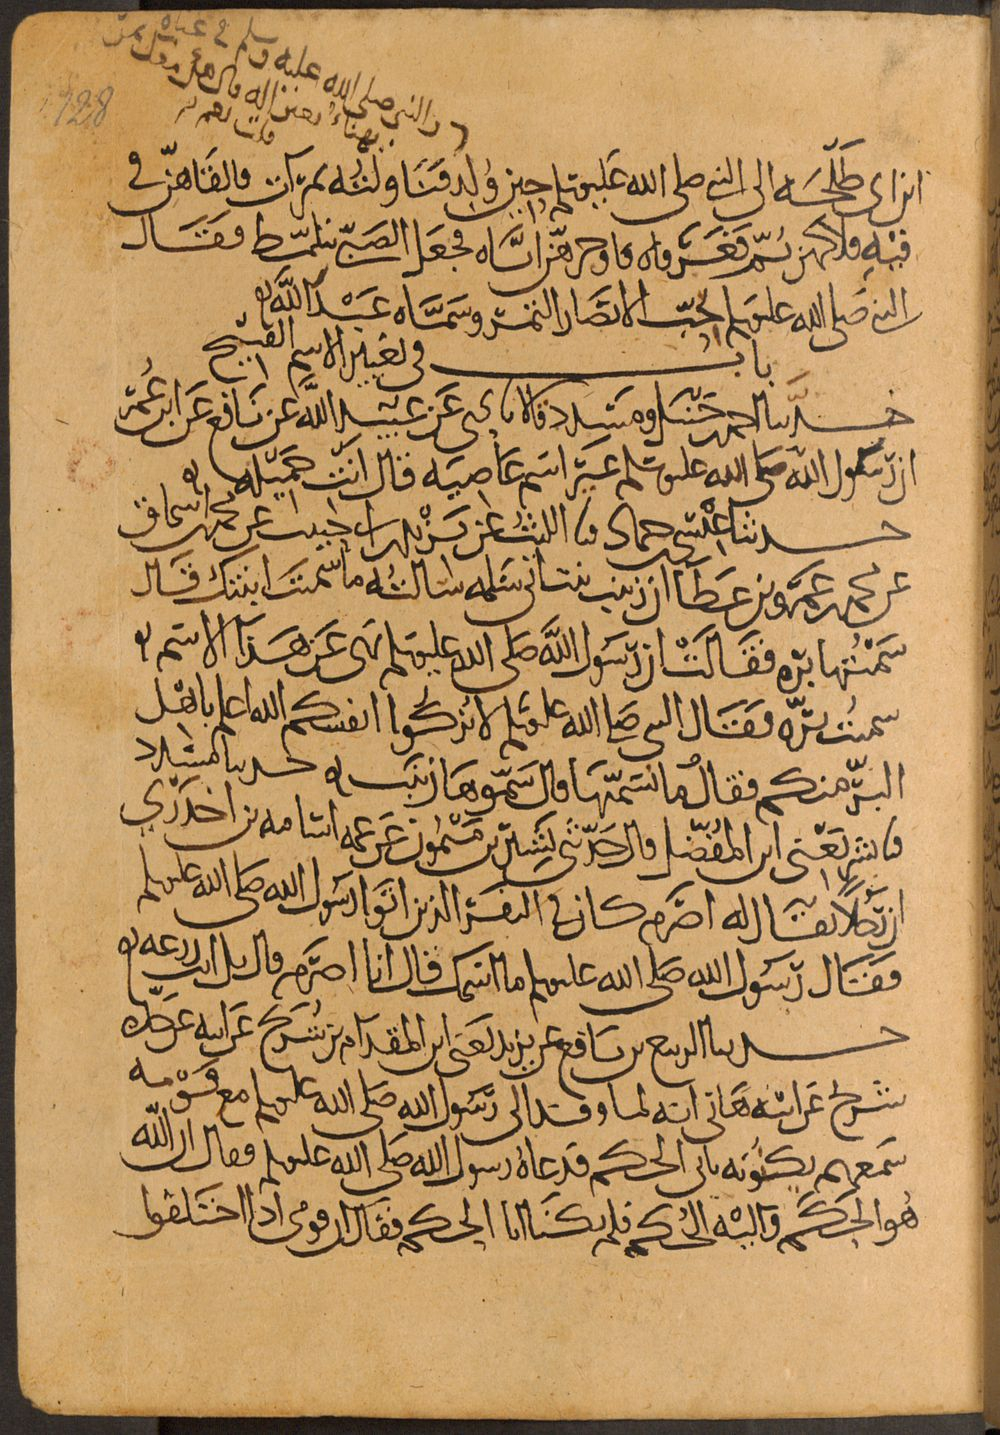 128
النبي صلى الله عليه وسلم في عباءة
يهنأ بعيرا له قال هل معك تمر
قلت نعم
ابن ابي طلحة الى النبي صلى الله عليه وسلم حين ولد فتناولته تمرات فالقاهن في
فيه فلاكهن ثم فغر فاه فاوجرهن اياه فجعل الصبي يتلمظ فقال
النبي صلى الله عليه وسلم حب الانصار التمر وسماه عبد الله
باب في تغيير الاسم القبيح
حدثنا احمد بن حنبل ومسدد قالا نا يحيى عن عبيد الله عن نافع عن ابن عمر
ان رسول الله صلى الله عليه وسلم غير اسم عاصية قال انت جميلة
حدثنا عيسى بن حماد نا الليث عن يزيد بن ابي حبيب عن محمد بن اسحاق
عن محمد بن عمرو بن عطا ان زينب بنت ابي سلمه سالته ما سميت ابنتك قال
سميتها بره فقالت ان رسول الله صلى الله عليه وسلم نهى عن هذا الاسم
سميت بره فقال النبي صلى الله عليه وسلم لا تزكوا انفسكم الله اعلم باهل
البر منكم فقال ما نسميها قال سموها زينب حدثنا مسدد
نا بشر يعني ابن المفضل قال حدثني بشير بن ميمون عن عمه اسامه بن اخدري
ان رجلا يقال له اصرم كان في النفر الذين اتوا رسول الله صلى الله عليه وسلم
فقال رسول الله صلى الله عليه وسلم ما اسمك قال انا اصرم قال بل انت زرعه
حدثنا الربيع بن نافع عن يزيد يعني ابن المقدام بن شريح عن ابيه عن جده
شريح عن ابيه هاني انه لما وفد الى رسول الله صلى الله عليه وسلم مع قومه
سمعهم يكنونه بابي الحكم فدعاه رسول الله صلى الله عليه وسلم فقال ان الله
هو الحكم واليه الحكم فلم تكنا ابا الحكم فقال ان قومي اذا اختلفوا